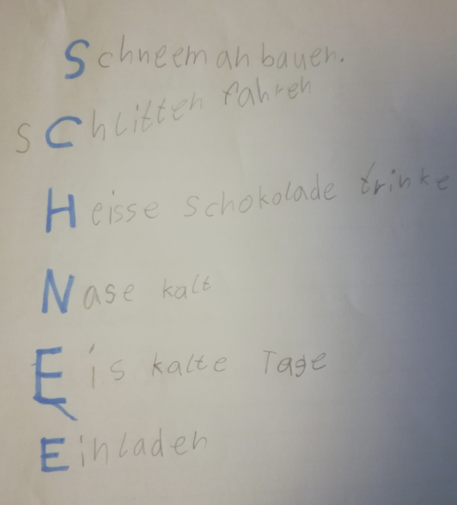 Schneeman bauen.
sChlitten fahren
Heisse Schokolade trinke
Nase kalt
Eis kalte Tage
Einladen